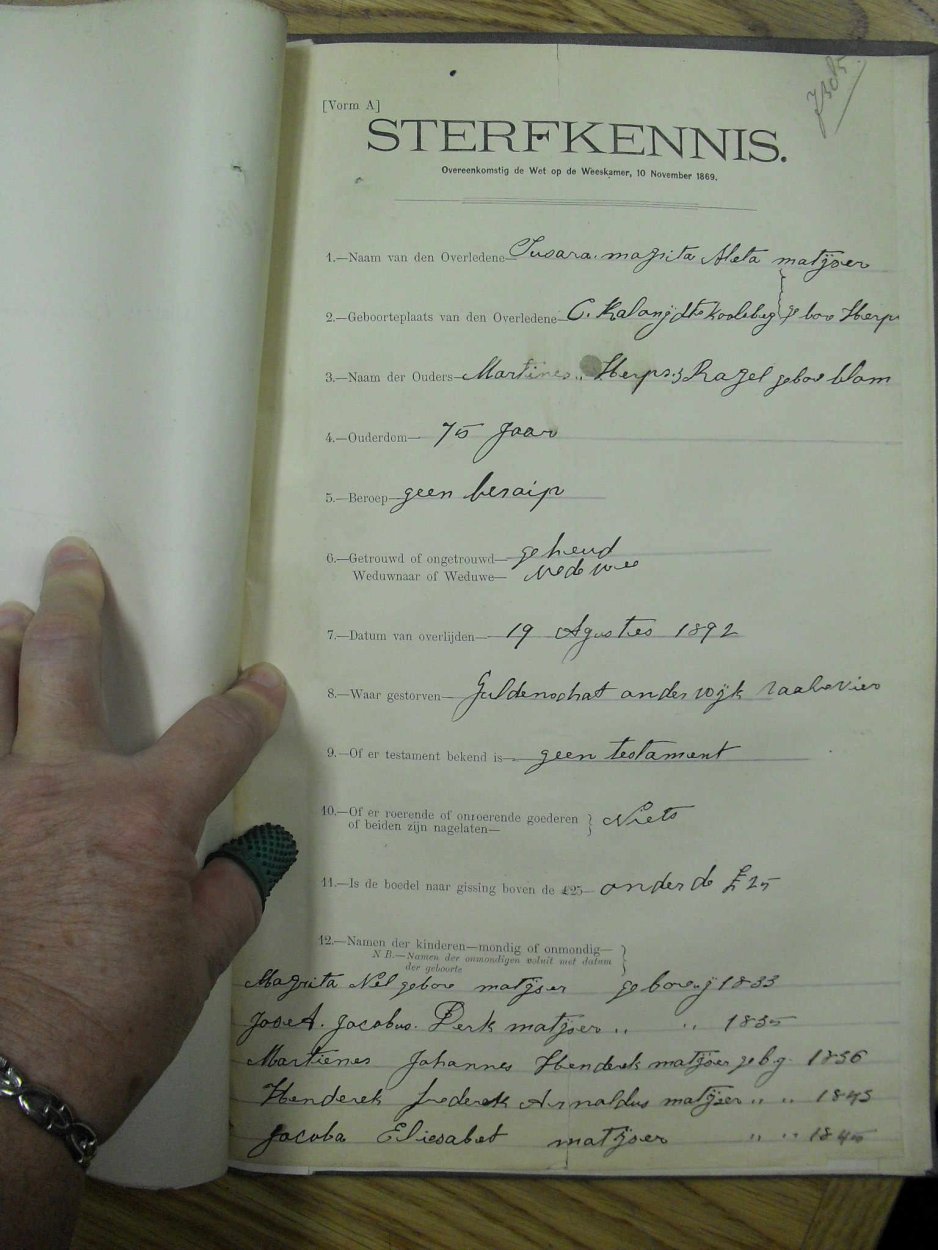 [Vorm A]
STERFKENNIS.
Overeenkomstig de Wet op de Weeskamer, 10 November 1869.
1.—Naam van den Overledene— Susara. magrita Aleta matijser
2.—Geboorteplaats van den Overledene— C. Kalanij geboo Herps
3.—Naam der Ouders— Martines Herps. & Ragel geboe blom
4.—Ouderdom— 75 Jaar
5.—Beroep— geen beraip
6.—Getrouwd of ongetrouwd— geheud
Weduwnaar of Weduwe— Wedewee
7.—Datum van overlijden— 19 Agusties 1892
8.—Waar gestorven— Guldenschat anderswijk
9.—Of er testament bekend is— geen testament
10.—Of er roerende of onroerende goederen } Niets
of beiden zijn nagelaten—
11.—Is de boedel naar gissing boven de £25— onder de £25
12.—Namen der kinderen—mondig of onmondig— }
N B.—Namen der onmondigen voluit met datum
der geboorte
Magrita Nel gebore matijser geboreg 1833
Jacobus. Derk matijser " " 1835
Martienes Johannes Henderek matijser geb g. 1836
Henderek frederek Arnaldus matijser " " 1843
Jacoba Eliesabet matijser " " 1845